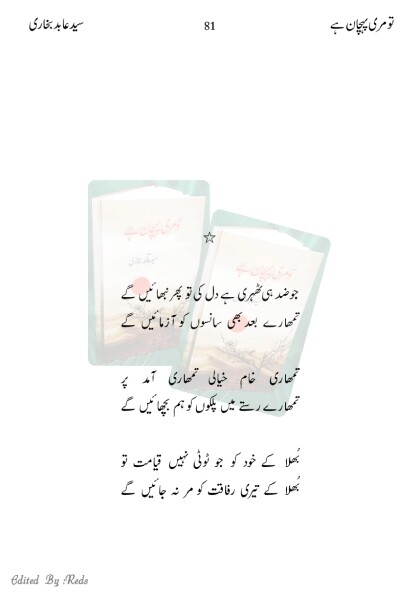 تو مری پہچان ہے
81
سید عابد بخاری
☆
جو ضد ہی ٹھہری ہے دل کی تو پھر نبھائیں گے
تمھارے بعد بھی سانسوں کو آزمائیں گے
تمھاری خام خیالی تمھاری آمد پر
تمھارے رستے میں پلکوں کو ہم بچھائیں گے
بُھلا کے خود کو جو ٹوٹی نہیں قیامت تو
بُھلا کے تیری رفاقت کو مر نہ جائیں گے
Edited By Reds